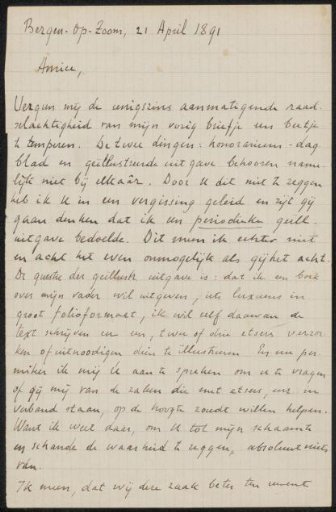 Bergen-Op-Zoom, 21 April 1891
Amice,
Vergun mij de eenigszins aanmatigende raad-
selachtigheid van mijn vorig briefje een beetje
te temperen. De twee dingen: honorarium-dag-
blad en geïllustreerde uitgave behooren name-
lijk niet bij elkaâr. Door U dit niet te zeggen
heb ik U in een vergissing geleid en zijt gij
gaan denken dat ik een periodieke geïll.
uitgave bedoelde. Dit meen ik echter niet
en acht het even onmogelijk als gij het acht.
De quaestie der geïllustr. uitgave is: dat ik een boek
over mijn vader wil uitgeven, iets luxueus in
groot folioformaat, ik wil zelf daarvan de
text schrijven en een, twee of drie etsers verzoe-
ken of uitnoodigen dien te illustreeren. En nu per-
miteer ik mij U aan te spreken om U te vragen
of gij mij van de zaken die met etsen, enz. in
verband staan, op de hoogte zoudt willen helpen.
Want ik weet daar, om U tot mijn schaamte
en schande de waarheid te zeggen, absoluut niets
van.
Ik meen, dat wij deze zaak beter ten